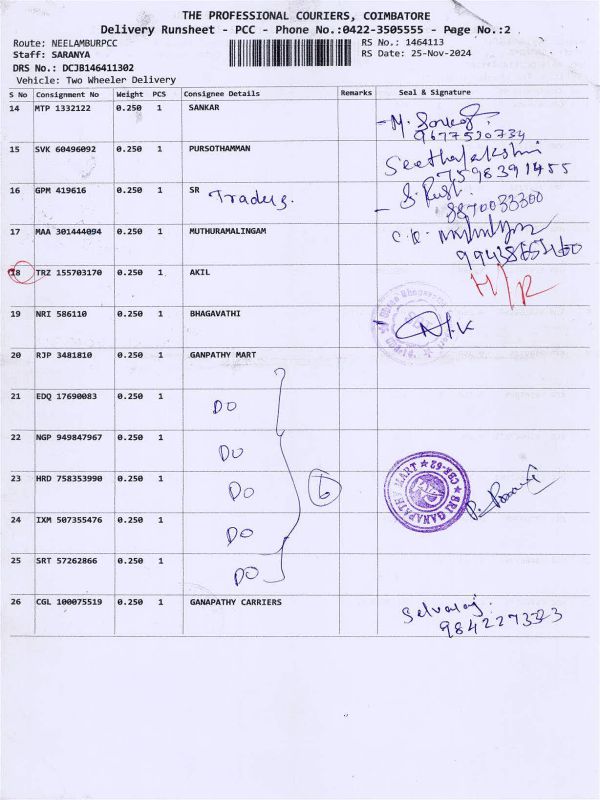 THE PROFESSIONAL COURIERS, COIMBATORE
Delivery Runsheet - PCC - Phone No.:0422-3505555 - Page No.:2
Route: NEELAMBURPCC
RS No.: 1464113
Staff: SARANYA
RS Date: 25-Nov-2024
DRS No.: DCJB146411302
Vehicle: Two Wheeler Delivery
S No Consignment No Weight PCS Consignee Details Remarks Seal & Signature
14 MTP 1332122 0.250 1 SANKAR
9677530734
15 SVK 60496092 0.250 1 PURSOTHAMMAN Seethalakshmi
7598391455
16 GPM 419616 0.250 1 SR Traders.
8870033300
17 MAA 301444094 0.250 1 MUTHURAMALINGAM
18 TRZ 155703170 0.250 1 AKIL H/R
19 NRI 586110 0.250 1 BHAGAVATHI
20 RJP 3481810 0.250 1 GANPATHY MART
21 EDQ 17690083 0.250 1 DO
22 NGP 949847967 0.250 1 DO
23 HRD 758353990 0.250 1 DO 6
24 IXM 507355476 0.250 1 DO
25 SRT 57262866 0.250 1 DO
SRI GANAPATHY MART ★ CBE-62 ★
26 CGL 100075519 0.250 1 GANAPATHY CARRIERS Selvaraj.
9842273323